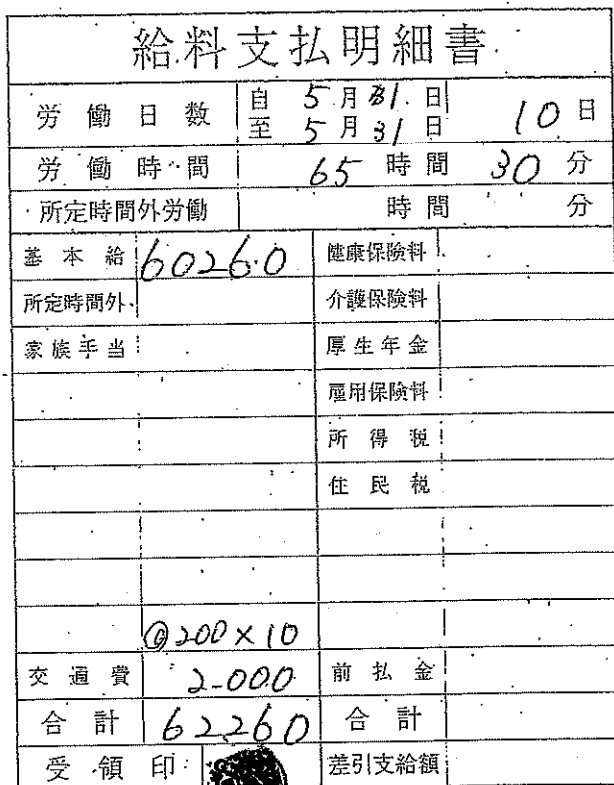 給料支払明細書
労働日数 自 5月31日 至 5月31日 10日
労働時間 65時間30分
所定時間外労働 時間 分
基本給 60260 健康保険料
所定時間外 介護保険料
家族手当 厚生年金
雇用保険料
所得税
住民税
@200×10
交通費 2000 前払金
合計 62260 合計
受領印 差引支給額